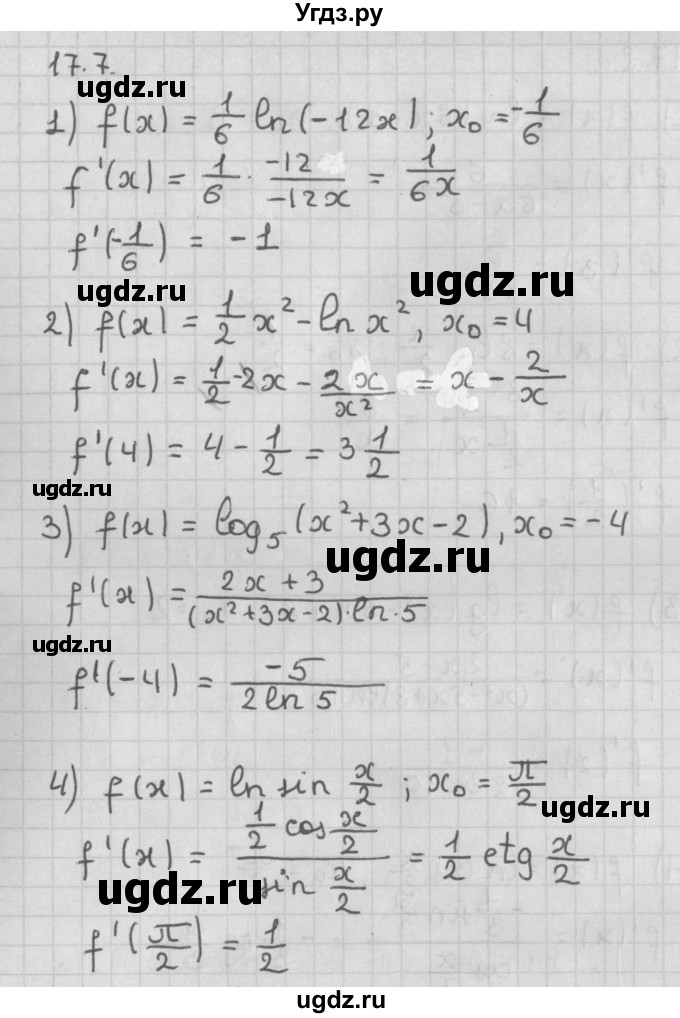 Угдз.ру
17.7.
ugdz.ru
1) f(x) = 1/6 ln(-12x); x₀ = -1/6
f'(x) = 1/6 · -12/-12x = 1/6x
f'(-1/6) = -1
ugdz.ru
2) f(x) = 1/2 x² - ln x², x₀ = 4
f'(x) = 1/2 · 2x - 2x/x² = x - 2/x
f'(4) = 4 - 1/2 = 3 1/2
ugdz.ru
3) f(x) = log₅(x²+3x-2), x₀ = -4
ugdz.ru
f'(x) = 2x+3/(x²+3x-2)·ln·5
ugdz.ru
f'(-4) = -5/2 ln 5
4) f(x) = ln sin x/2; x₀ = π/2
ugdz.ru
f'(x) = 1/2 cos x/2 / sin x/2 = 1/2 ctg x/2
ugdz.ru
f'(π/2) = 1/2
ugdz.ru